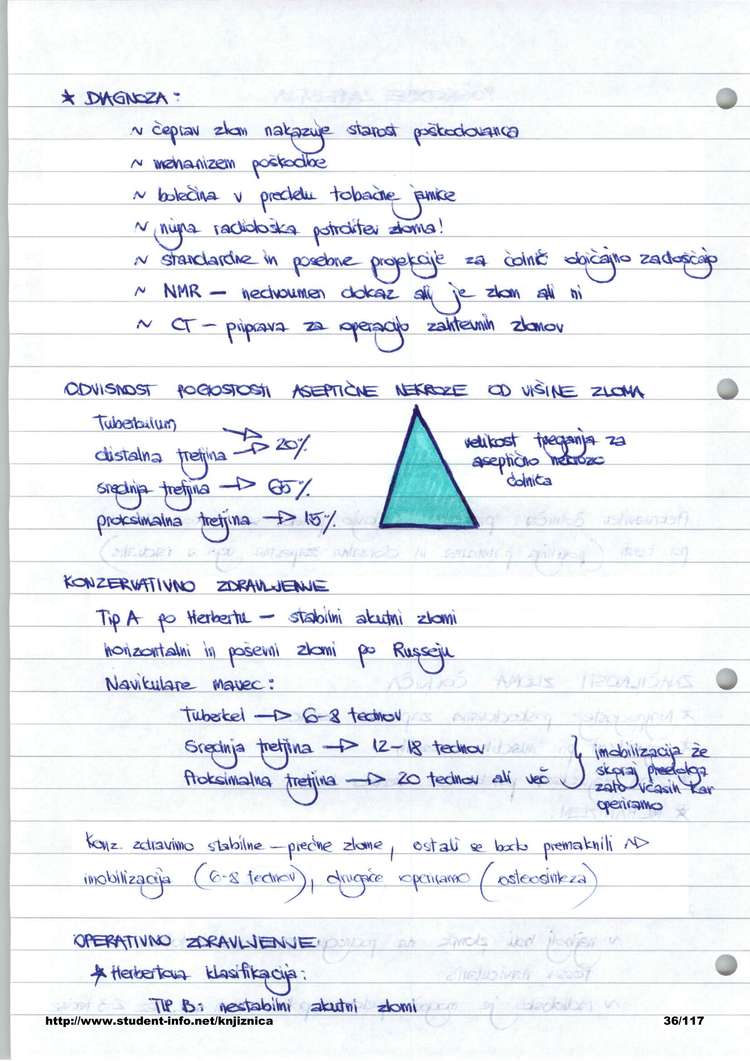 * DIAGNOZA:
~ čeprav zlom nakazuje starost poškodovanca
~ mehanizem poškodbe
~ bolečina v predelu tobačne jamice
~ nujna radiološka potrditev zloma!
~ standardne in posebne projekcije za čolnič običajno zadoščajo
~ NMR – nedvoumen dokaz ali je zlom ali ni
~ CT – priprava za operacijo zahtevnih zlomov
ODVISNOST POGOSTOSTI ASEPTIČNE NEKROZE OD VIŠINE ZLOMA
Tuberkulum →
distalna tretjina → 20%
srednja tretjina → 65%
proksimalna tretjina → 15%
velikost tveganja za
aseptično nekrozo
čolniča
KONZERVATIVNO ZDRAVLJENJE
Tip A po Herbertu – stabilni akutni zlomi
horizontalni in poševni zlomi po Russeju
Navikulare mavec:
Tuberkel → 6-8 tednov
Srednja tretjina → 12-18 tednov
Proksimalna tretjina → 20 tednov ali več
imobilizacija že
skoraj predolga
zato včasih kar
operiramo
Konz. zdravimo stabilne – prečne zlome, ostali se bodo premaknili →
imobilizacija (6-8 tednov), drugače operiramo (osteosinteza)
OPERATIVNO ZDRAVLJENJE
* Herbertova klasifikacija:
TIP B: nestabilni akutni zlomi
http://www.student-info.net/knjiznica 36/117